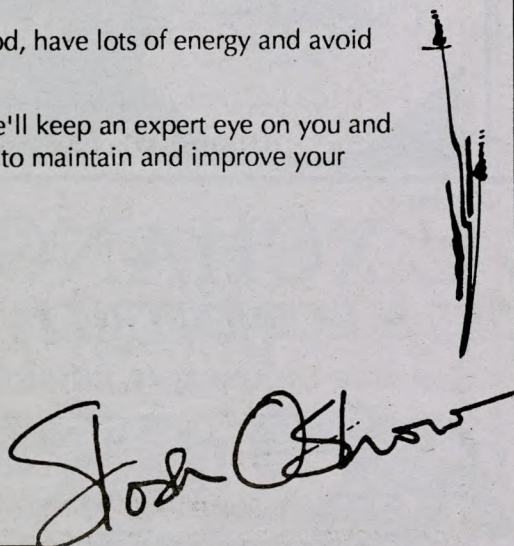 od, have lots of energy and avoid
e'll keep an expert eye on you and
to maintain and improve your
Stosh Ostrow